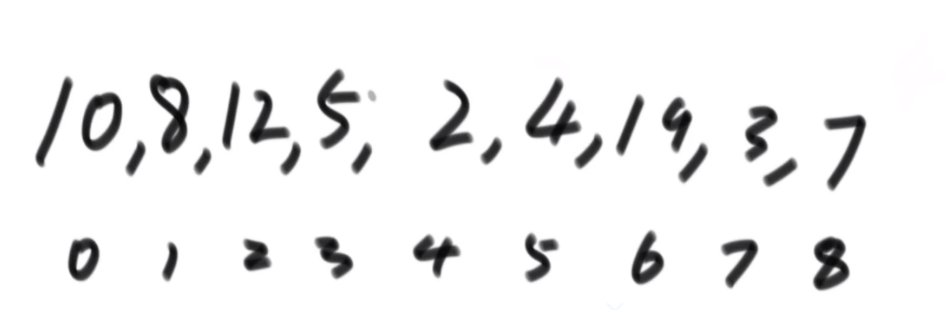 10,8,12,5, 2,4,19,3,7
0 1 2 3 4 5 6 7 8